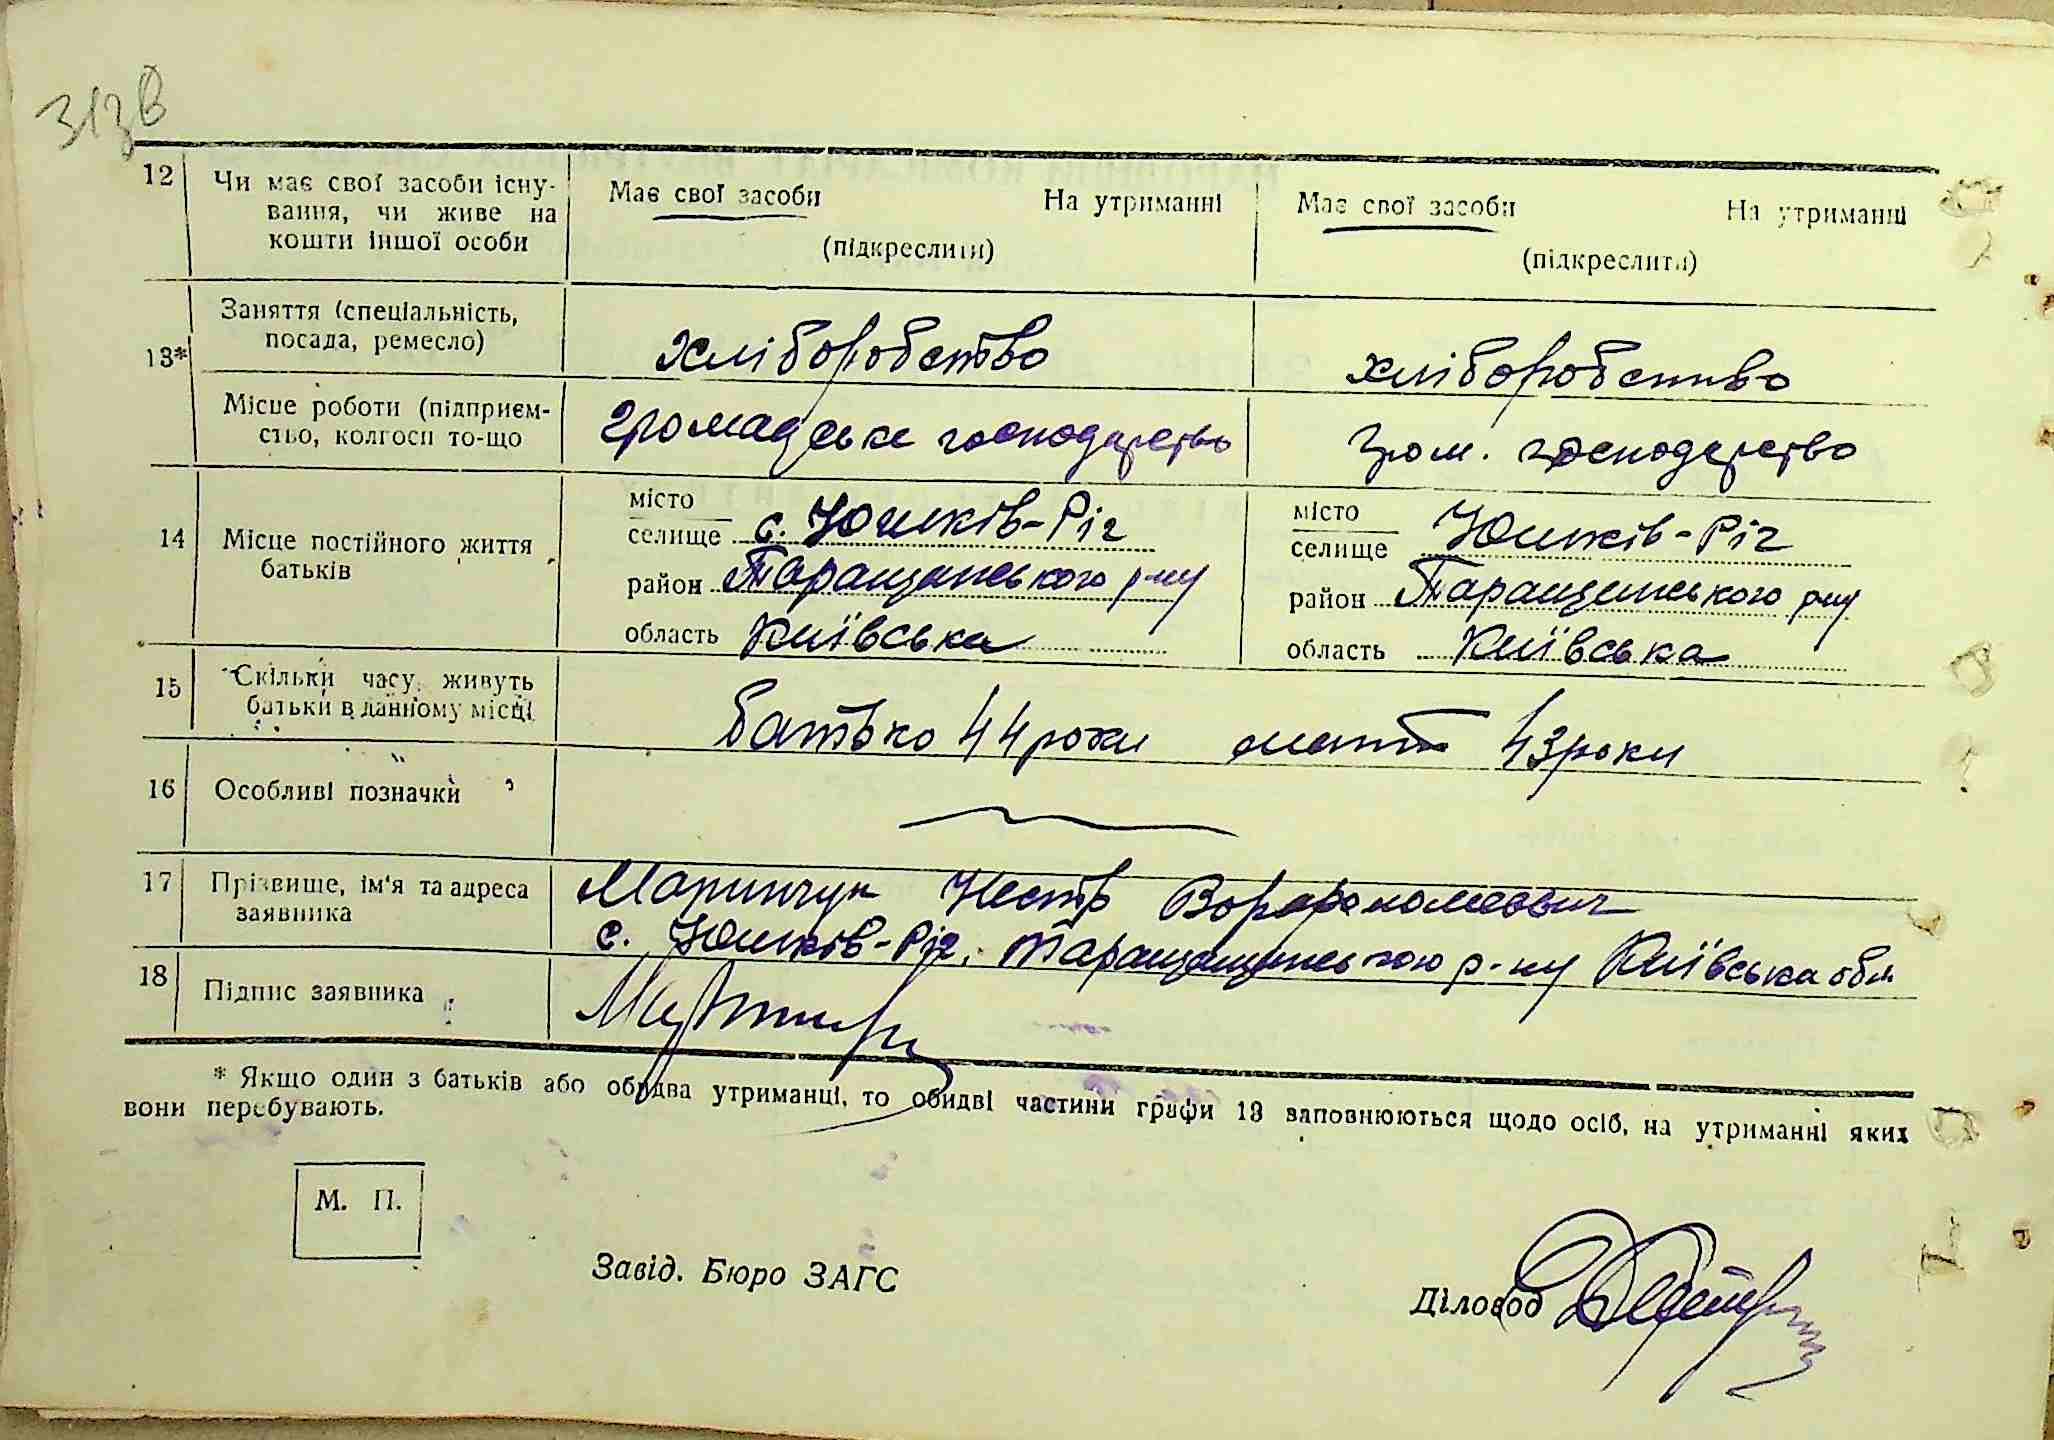 313в
12
Чи має свої засоби існу-
вання, чи живе на
кошти іншої особи
Має свої засоби На утриманні
(підкреслити)
Має свої засоби На утриманні
(підкреслити)
13*
Заняття (спеціальність,
посада, ремесло)
хліборобство
хліборобство
Місце роботи (підприєм-
ство, колгосп то-що
громадське господарство
Гром. господарство
14
Місце постійного життя
батьків
місто
селище с. Юшків-Ріг
район Таращанського р-ну
область Київська
місто
селище Юшків-Ріг
район Таращанського р-ну
область Київська
15
Скільки часу живуть
батьки в данному місці
батько 44 роки мати 43 роки
16
Особливі позначки
17
Прізвище, ім'я та адреса
заявника
Маринчук Нестір
с. Юшків-Ріг, р-ну Київська обл.
18
Підпис заявника
* Якщо один з батьків або обидва утриманці, то обидві частини графи 13 заповнюються щодо осіб, на утриманні яких
вони перебувають.
М. П.
Завід. Бюро ЗАГС
Діловод